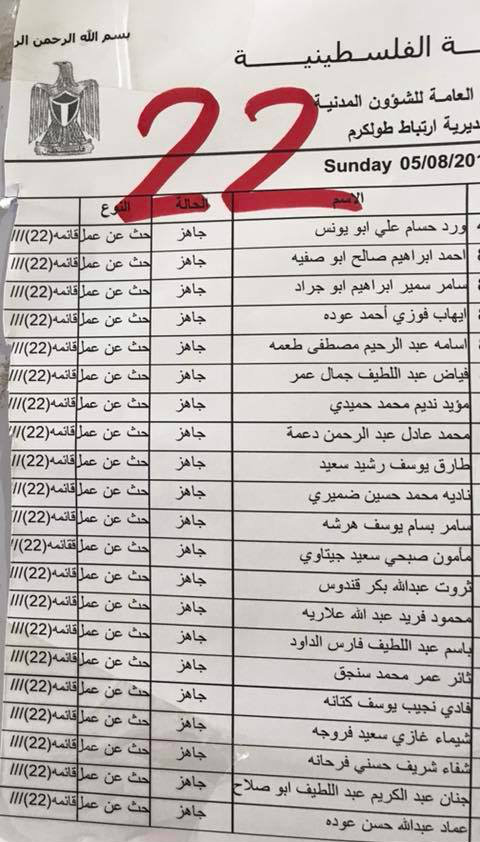 بسم الله الرحمن الر
ـة الفلسـطينيـــــة
العامة للشؤون المدنية
ديرية ارتباط طولكرم
22
Sunday 05/08/201
الاسم الحالة النوع
ورد حسام علي ابو يونس جاهز حث عن عمل قائمه(22)///
احمد ابراهيم صالح ابو صفيه جاهز حث عن عمل قائمه(22)///
سامر سمير ابراهيم ابو جراد جاهز حث عن عمل قائمه(22)///
ايهاب فوزي أحمد عوده جاهز حث عن عمل قائمه(22)///
اسامه عبد الرحيم مصطفى طعمه جاهز حث عن عمل قائمه(22)///
فياض عبد اللطيف جمال عمر جاهز حث عن عمل قائمه(22)///
مؤيد نديم محمد حميدي جاهز حث عن عمل قائمه(22)///
محمد عادل عبد الرحمن دعمة جاهز حث عن عمل قائمه(22)//
طارق يوسف رشيد سعيد جاهز حث عن عمل قائمه(22)///
ناديه محمد حسين ضميري جاهز حث عن عمل قائمه(22)//
سامر بسام يوسف هرشه جاهز حث عن عمل قائمه(22)///
مأمون صبحي سعيد جيتاوي جاهز حث عن عمل ققائمه(22)//
ثروت عبدالله بكر قندوس جاهز حث عن عمل قائمه(22)///
محمود فريد عبد الله علاريه جاهز حث عن عمل قائمه(22)///
باسم عبد اللطيف فارس الداود جاهز حث عن عمل قائمه(22)///
ثائر عمر محمد سنجق جاهز حث عن عمل قائمه(22)///
فادي نجيب يوسف كتانه جاهز حث عن عمل قائمه(22)///
شيماء غازي سعيد فروجه جاهز حث عن عمل قائمه(22)///
شفاء شريف حسني فرحانه جاهز حث عن عمل قائمه(22)///
جنان عبد الكريم عبد اللطيف ابو صلاح جاهز حث عن عمل قائمه(22)///
عماد عبدالله حسن عوده جاهز حث عن عمل قائمه(22)///